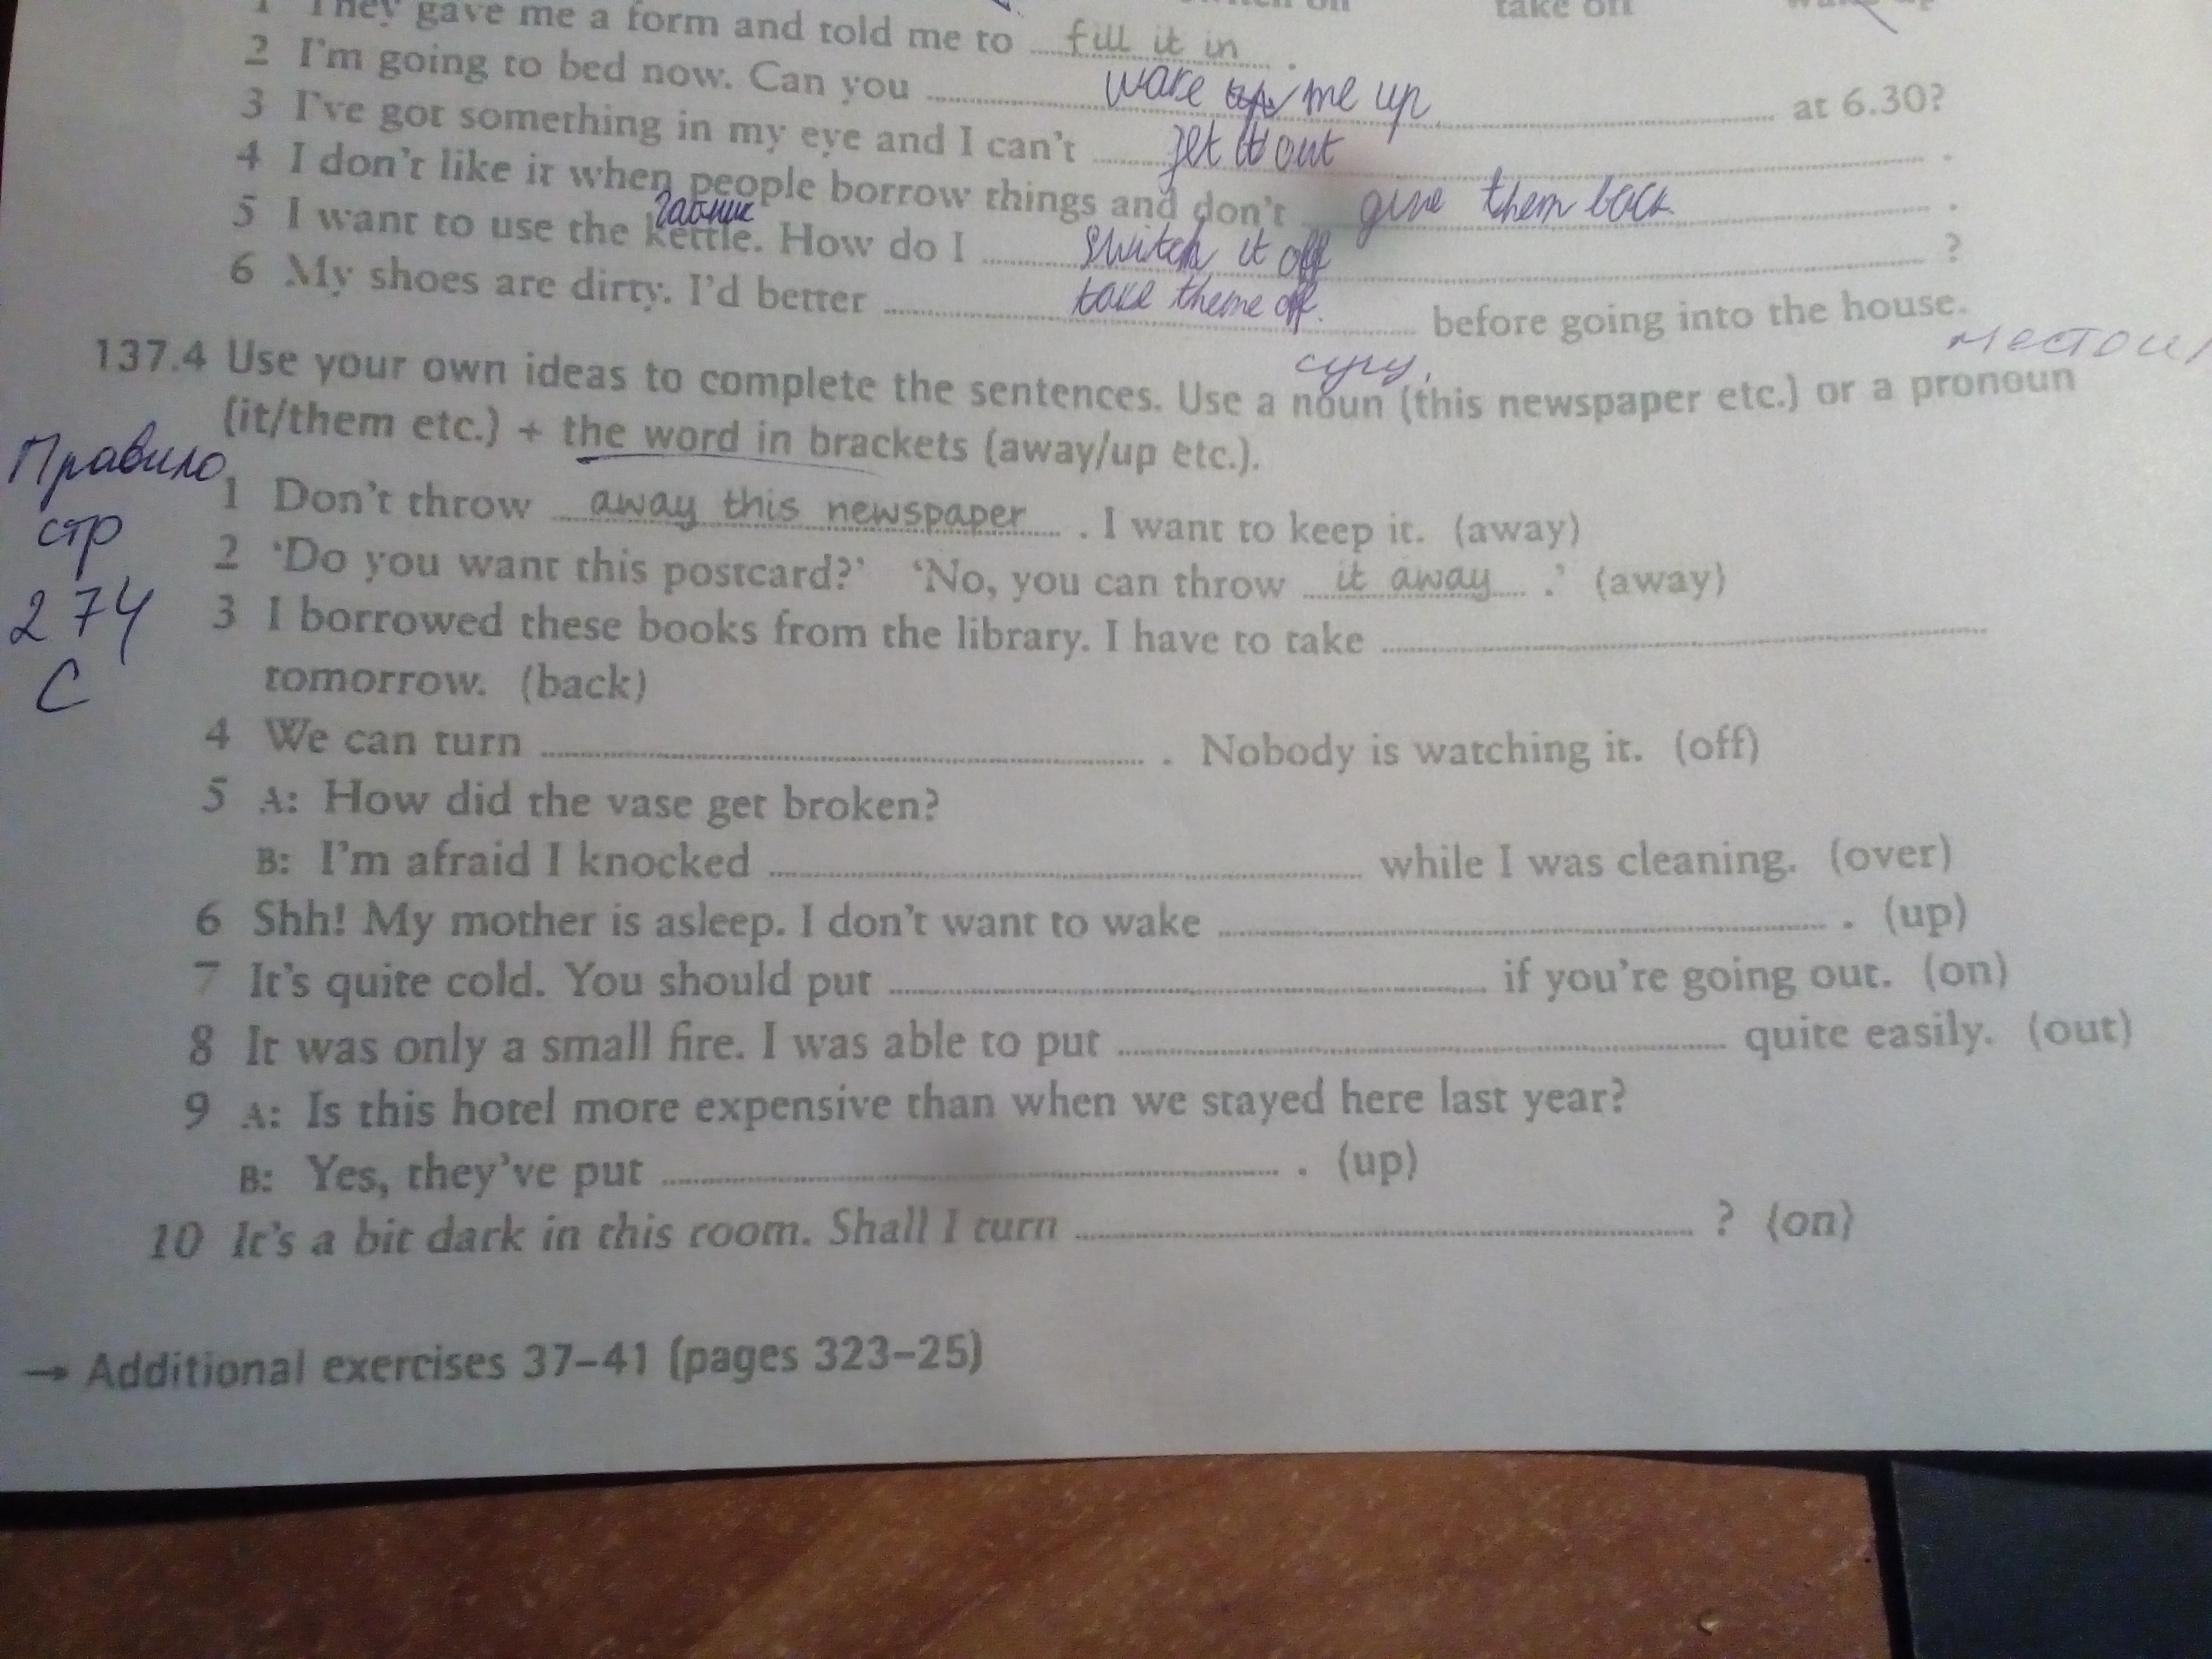 1 They gave me a form and told me to fill it in .
take off
2 I'm going to bed now. Can you wake me up at 6.30?
3 I've got something in my eye and I can't get it out .
4 I don't like it when people borrow things and don't give them back .
5 I want to use the kettle. How do I switch it off ?
6 My shoes are dirty. I'd better take theme off. before going into the house.
сущ.
137.4 Use your own ideas to complete the sentences. Use a noun (this newspaper etc.) or a pronoun
(it/them etc.) + the word in brackets (away/up etc.).
Правило
стр
274
C
1 Don't throw away this newspaper . I want to keep it. (away)
2 'Do you want this postcard?' 'No, you can throw it away .' (away)
3 I borrowed these books from the library. I have to take
tomorrow. (back)
4 We can turn . Nobody is watching it. (off)
5 A: How did the vase get broken?
B: I'm afraid I knocked while I was cleaning. (over)
6 Shh! My mother is asleep. I don't want to wake . (up)
7 It's quite cold. You should put if you're going out. (on)
8 It was only a small fire. I was able to put quite easily. (out)
9 A: Is this hotel more expensive than when we stayed here last year?
B: Yes, they've put . (up)
10 It's a bit dark in this room. Shall I turn ? (on)
→ Additional exercises 37–41 (pages 323–25)